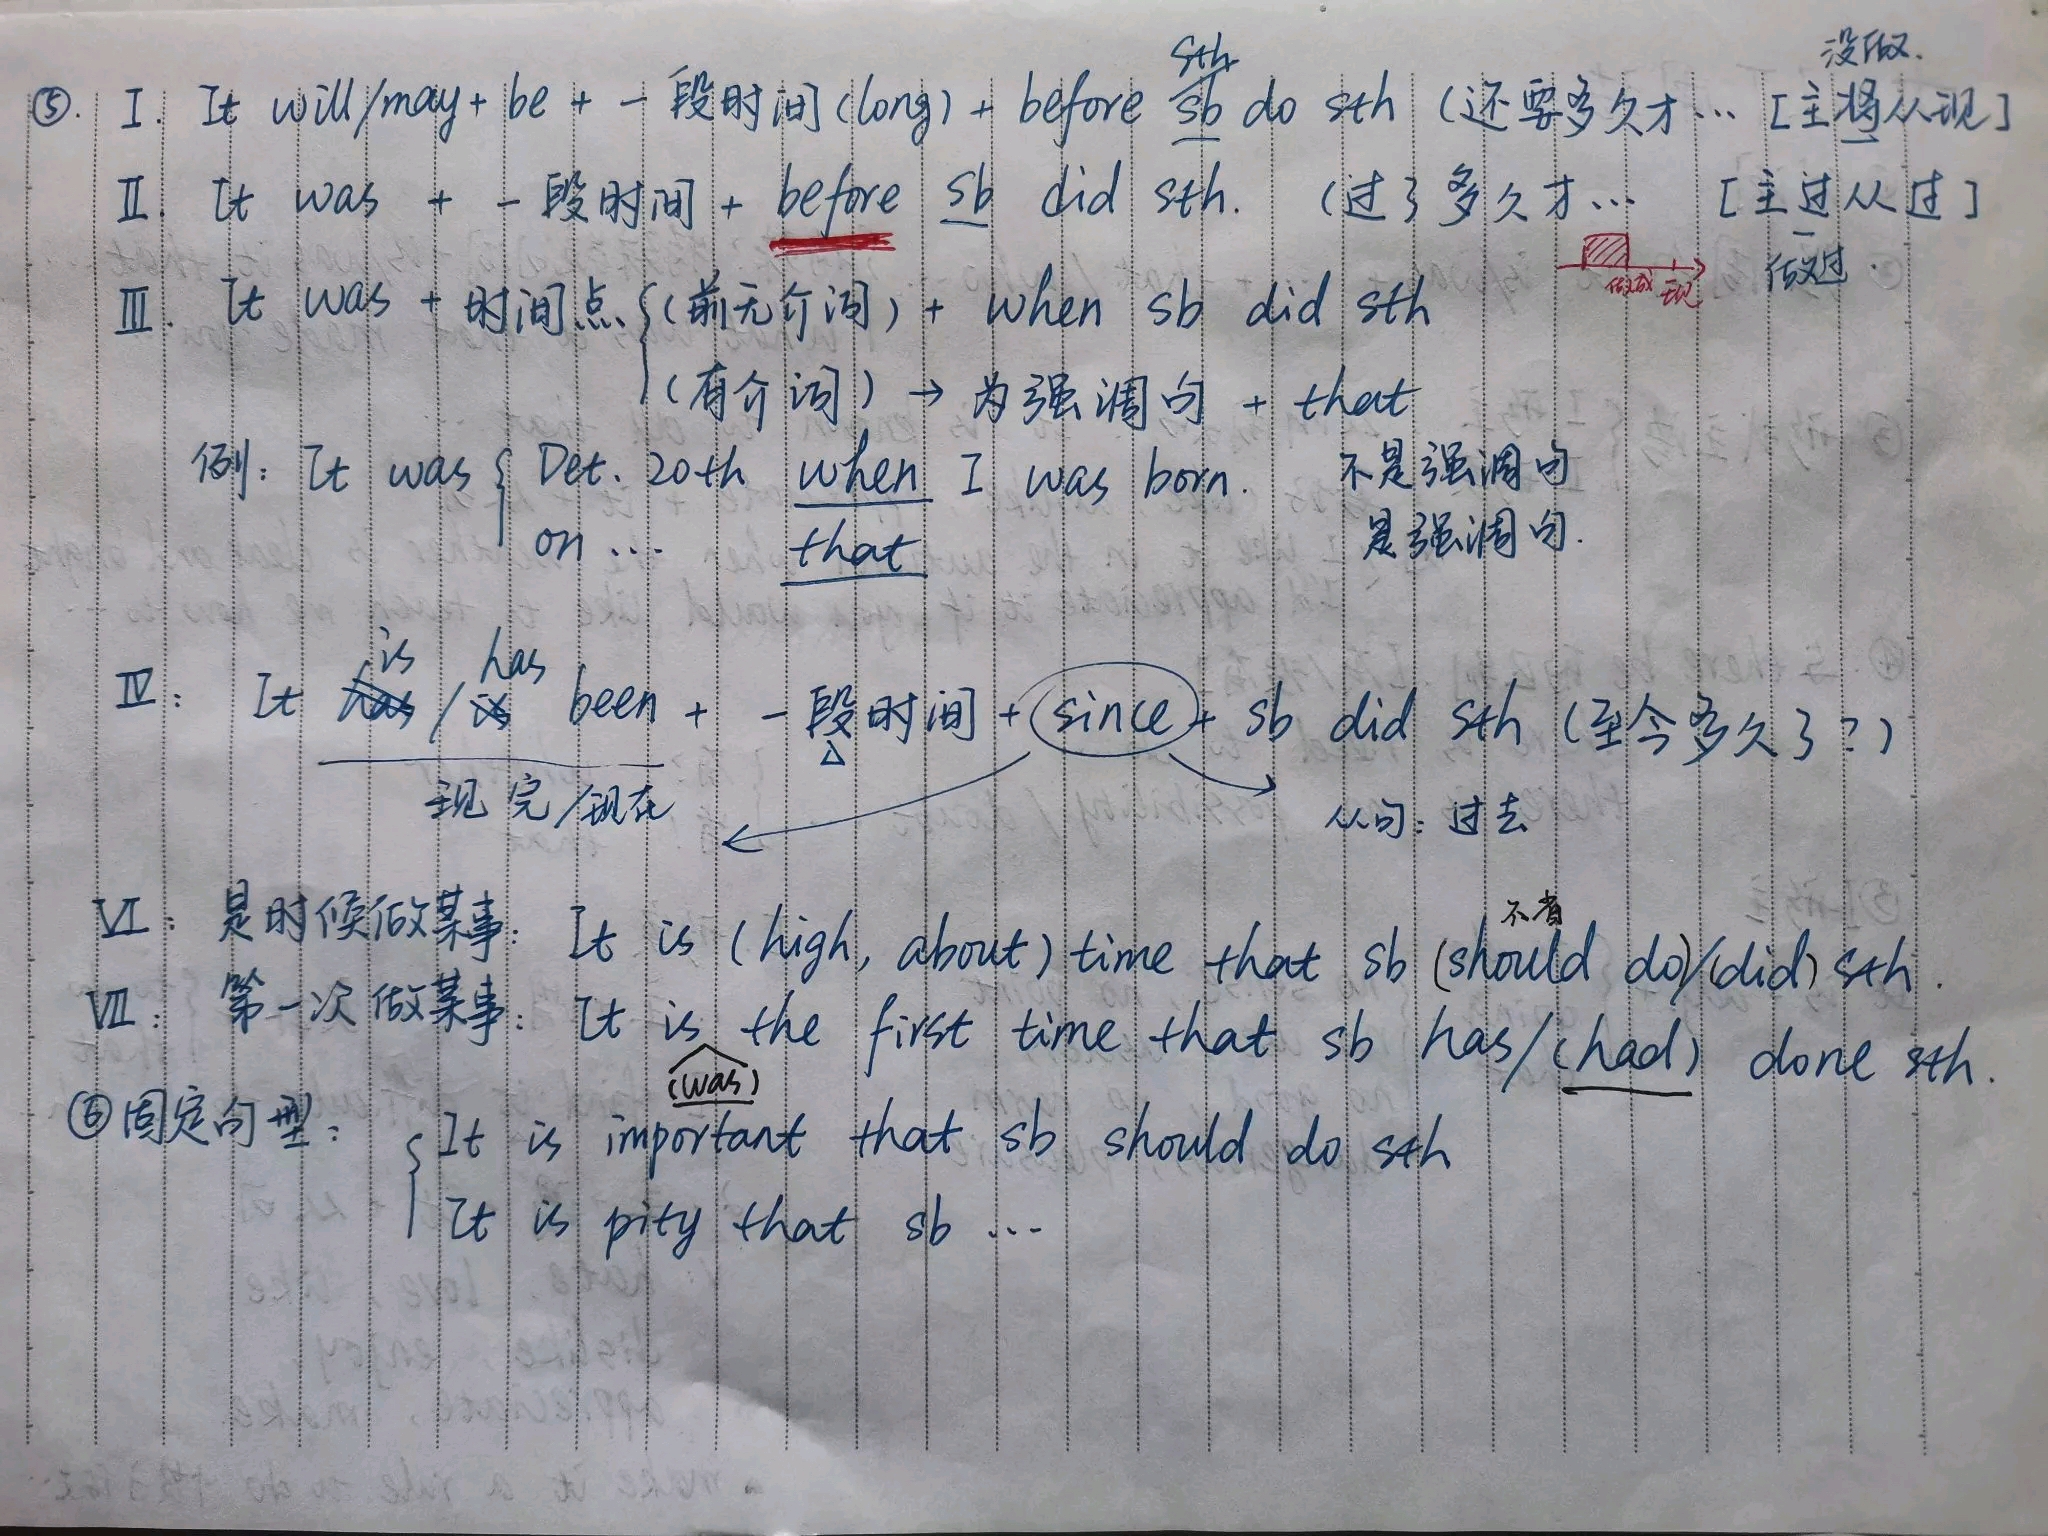 没做.
sth
⑤. I. It will/may + be + 一段时间(long) + before sb do sth (还要多久才… [主将从现]
II. It was + 一段时间 + before sb did sth. (过了多久才… [主过从过]
做过.
做成 现
III. It was + 时间点 { (前无介词) + when sb did sth
(有介词) → 为强调句 + that
例: It was { Det. 20th when I was born. 不是强调句
on … that 是强调句.
is has
IV: It has / is been + 一段时间 + since + sb did sth (至今多久了?)
现完/现在 从句: 过去
不省
VI: 是时候做某事: It is (high, about) time that sb (should do)/(did) sth.
VII: 第一次做某事: It is the first time that sb has/(had) done sth.
(was)
⑥固定句型: { It is important that sb should do sth
It is pity that sb …